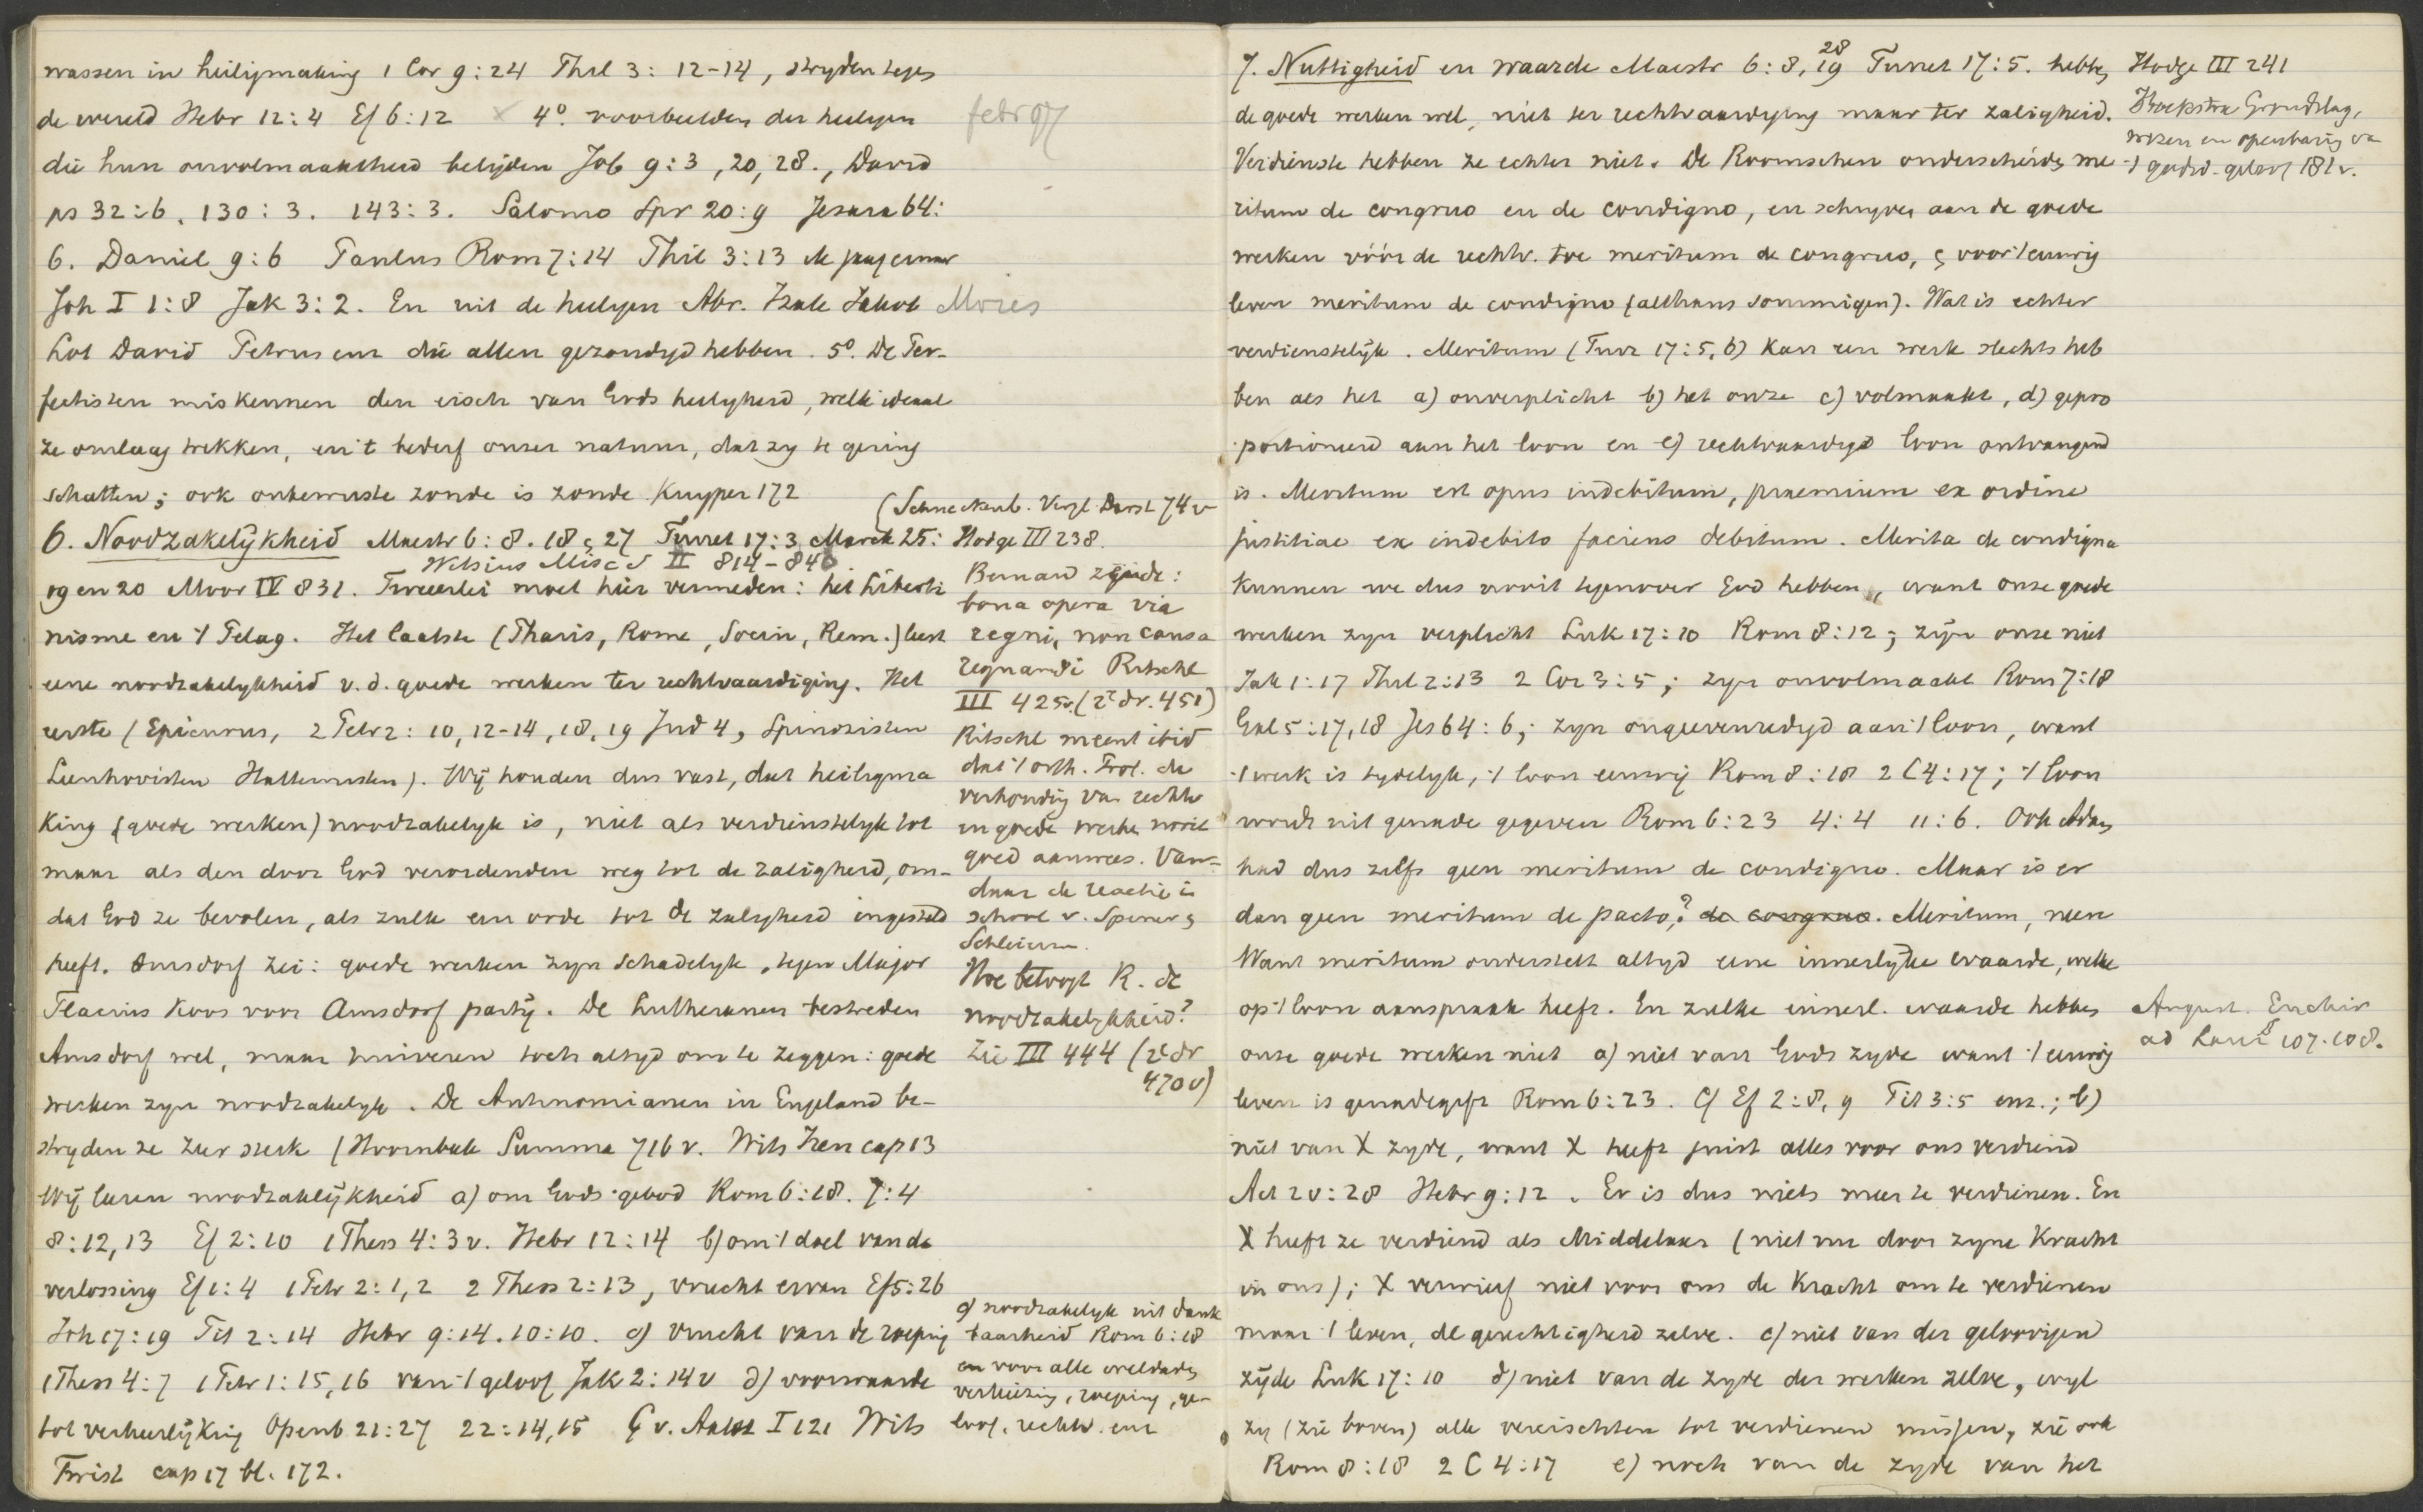 wassen in heiligmaking 1 Cor 9:24 Phil 3: 12-14, stryden tegen
de wereld Hebr 12:4 Ef 6:12 × 4º. voorbeelden der heiligen
die hun onvolmaaktheid belijden Job 9:3, 20, 28., David
ps 32:6, 130:3. 143:3. Salomo Spr 20:9 Jesaia 64:
6. Daniel 9:6 Paulus Rom 7:14 Phil 3:13
Joh I 1:8 Jak 3:2. En uit de heiligen Abr. Izak Jakob Mozes
Lot David Petrus enz die allen gezondigd hebben. 5º. De Per-
fectisten miskennen den eisch van Gods heiligheid, welk ideaal
ze omlaag trekken, en 't bederf onzer natuur, dat zy te gering
schatten; ook onbewuste zonde is zonde. Kuyper 172
(Schneckenb. Vergl. Darst 74 v
6. Noodzakelijkheid Maestr 6:8. 18 ς 27 Turret 17:3 Marck 25:
Witsius Misc S II 814-846
19 en 20 Moor IV 831. Tweeerlei moet hier vermeden: het Liberti
nisme en 't Pelag. Het laatste (Pharis, Rome, Socin, Rem.) leert
eene noodzakelykheid v.d. goede werken ter rechtvaardiging. Het
eerste (Epicurus, 2 Petr 2: 10, 12-14, 18, 19 Jud 4, Spinozisten
Leenhovisten Hattemisten). Wij houden dus vast, dat heiligma
king (goede werken) noodzakelyk is, niet als verdienstelyk tot
maar als den door God verordenden weg tot de zaligheid, om-
dat God ze bevolen, als zulk een orde tot de zaligheid ingesteld
heeft. Amsdorf zei: goede werken zyn schadelyk, tegen Major
Flacius koos voor Amsdorf partij. De Lutheranen bestreden
Amsdorf wel, maar huiveren toch altyd om te zeggen: goede
werken zyn noodzakelyk. De Antinomianen in Engeland be-
stryden ze zeer sterk (Hoornbeek Summa 716 v. Wits Iren cap 13
Wij leeren noodzakelijkheid a) om Gods gebod Rom 6:18. 7:4
8:12, 13 Ef 2:10 1 Thess 4:3 v. Hebr 12:14 b) om 't doel van de
verlossing Ef 1:4 1 Petr 2:1,2 2 Thess 2:13, vrucht ervan Ef 5:26
Joh 17:19 Tit 2:14 Hebr 9:14. 10:10. c) vrucht van de roeping
1 Thess 4:7 1 Petr 1:15,16 van 't geloof Jak 2:14 v d) voorwaarde
tot verheerlijking Openb 21:27 22:14,15 I 121 Wits
Twist cap 17 bl. 172.
Hodge III 238.
Bernard zeide:
bona opera via
regni, non causa
regnandi Ritschl
III 425v. (2e dr. 451)
Ritschl meent ibid
dat 't orth. Prot. de
verhouding van rechtv
en goede werken nooit
goed aanwees. Van-
daar de reactie in
school v. Spener ς
Schleierm.
Hoe betoogt R. de
noodzakelykheid?
Zie III 444 (2e dr
470 v)
e) noodzakelyk uit dank
baarheid Rom 6:18
en voor alle weldaden
verkiezing, roeping, ge-
loof, rechtv. enz
7. Nuttigheid en waarde Maestr 6:8, 28 19 Turret 17:5. hebben
de goede werken wel, niet ter rechtvaardiging maar ter zaligheid.
Verdienste hebben ze echter niet. De Roomschen onderscheiden me
ritum de congruo en de condigno, en schryven aan de goede
werken vóór de rechtv. toe meritum de congruo, ς voor 't eeuwig
leven meritum de condigno (althans sommigen). Wat is echter
verdienstelijk. Meritum (Turr 17:5, 6) kan een werk slechts heb
ben als het a) onverplicht b) het onze c) volmaakt, d) gepro
portioneerd aan het loon en e) rechtvaardig loon ontvangend
is. Meritum est opus indebitum, praemium ex ordine
justitiae ex indebito faciens debitum. Merita de condigno
kunnen we dus nooit tegenover God hebben, want onze goede
werken zyn verplicht Luk 17:10 Rom 8:12; zijn onze niet
Jak 1:17 Phil 2:13 2 Cor 3:5; zyn onvolmaakt Rom 7:18
Gal 5:17,18 Jes 64:6; zyn onge­evenredigd aan 't loon, want
't werk is tydelyk, 't loon eeuwig Rom 8:18 2 C 4:17; 't loon
wordt uit genade gegeven Rom 6:23 4:4 11:6. Ook Adam
had dus zelfs geen meritum de condigno. Maar is er
dan geen meritum de pacto,? de congruo. Meritum, neen
Want meritum onderstelt altyd eene innerlijke waarde, welke
op 't loon aanspraak heeft. En zulke innerl. waarde hebben
onze goede werken niet a) niet van Gods zyde want 't eeuwig
leven is genadegift Rom 6:23. Ef 2:8, 9 Tit 3:5 enz.; b)
niet van X zyde, want X heeft juist alles voor ons verdiend
Act 20:28 Hebr 9:12. Er is dus niets meer te verdienen. En
X heeft ze verdiend als Middelaar (niet nu door zyne kracht
in ons); X verwierf niet voor ons de kracht om te verdienen
maar 't leven, de gerechtigheid zelve. c) niet van der geloovigen
zijde Luk 17:10 d) niet van de zyde der werken zelve, wyl
zy (zie boven) alle vereischten tot verdienen missen, zie ook
Rom 8:18 2 C 4:17 e) noch van de zyde van het
Hodge III 241
Hoekstra Grondslag,
wezen en openbaring van
't godsd. geloof 181 v.
August. Enchir
ad Laur 107. 108.